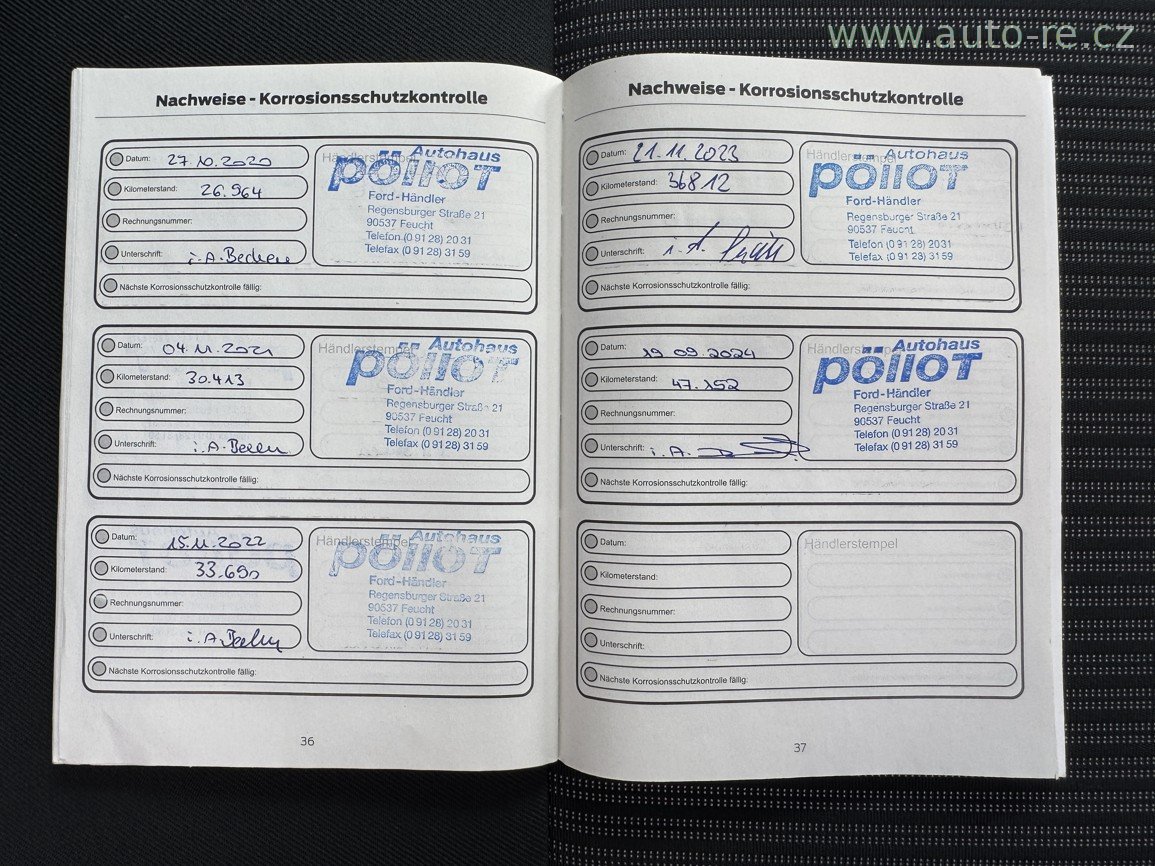 www.auto-re.cz
Nachweise - Korrosionsschutzkontrolle
Datum: 27.10.2020
Kilometerstand: 26.964
Rechnungsnummer:
Unterschrift: i.A.
Nächste Korrosionsschutzkontrolle fällig:
Händlerstempel
Autohaus
pöllot
Ford-Händler
Regensburger Straße 21
90537 Feucht
Telefon (0 91 28) 20 31
Telefax (0 91 28) 31 59
Datum: 04.11.2021
Kilometerstand: 30.413
Rechnungsnummer:
Unterschrift: i.A.
Nächste Korrosionsschutzkontrolle fällig:
Händlerstempel
Autohaus
pöllot
Ford-Händler
Regensburger Straße 21
90537 Feucht
Telefon (0 91 28) 20 31
Telefax (0 91 28) 31 59
Datum: 15.11.2022
Kilometerstand: 33.690
Rechnungsnummer:
Unterschrift: i.A.
Nächste Korrosionsschutzkontrolle fällig:
Händlerstempel
Autohaus
pöllot
Ford-Händler
Regensburger Straße 21
90537 Feucht
Telefon (0 91 28) 20 31
Telefax (0 91 28) 31 59
36
Nachweise - Korrosionsschutzkontrolle
Datum: 21.11.2023
Kilometerstand: 36812
Rechnungsnummer:
Unterschrift: i.A.
Nächste Korrosionsschutzkontrolle fällig:
Händlerstempel
Autohaus
pöllot
Ford-Händler
Regensburger Straße 21
90537 Feucht
Telefon (0 91 28) 20 31
Telefax (0 91 28) 31 59
Datum: 19 09.2024
Kilometerstand: 47.152
Rechnungsnummer:
Unterschrift: i.A.
Nächste Korrosionsschutzkontrolle fällig:
Händlerstempel
Autohaus
pöllot
Ford-Händler
Regensburger Straße 21
90537 Feucht
Telefon (0 91 28) 20 31
Telefax (0 91 28) 31 59
Datum:
Kilometerstand:
Rechnungsnummer:
Unterschrift:
Nächste Korrosionsschutzkontrolle fällig:
Händlerstempel
37